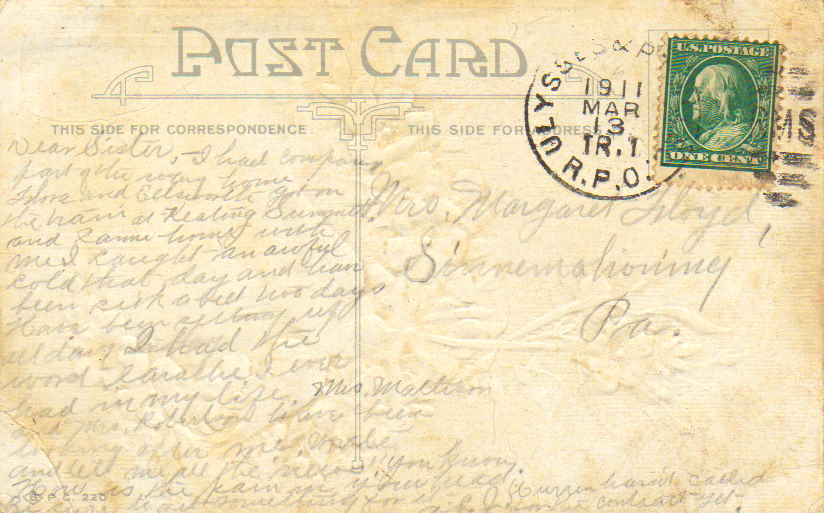 POST CARD
THIS SIDE FOR CORRESPONDENCE
THIS SIDE FOR ADDRESS
ULYSSES & P
1911
MAR
13
TR.1
R.P.O.
MS
U.S. POSTAGE
ONE CENT
Dear Sister, - I had company
part of the way home
Flora and Ellsworth got on
the train at Keating Summit
and came home with
me I caught an awful
cold that day and have
been sick abed two days
Have been sitting up
all day I had the
worst I ever
had in my life.
Mrs. Mattison
and Mrs. have been
looking after me.
and tell me all the news you know.
How is the pain in your head.
something for
called
contract yet.
Mrs. Margaret Lloyd,
Sinnemahoning
Pa.
P.C. 220